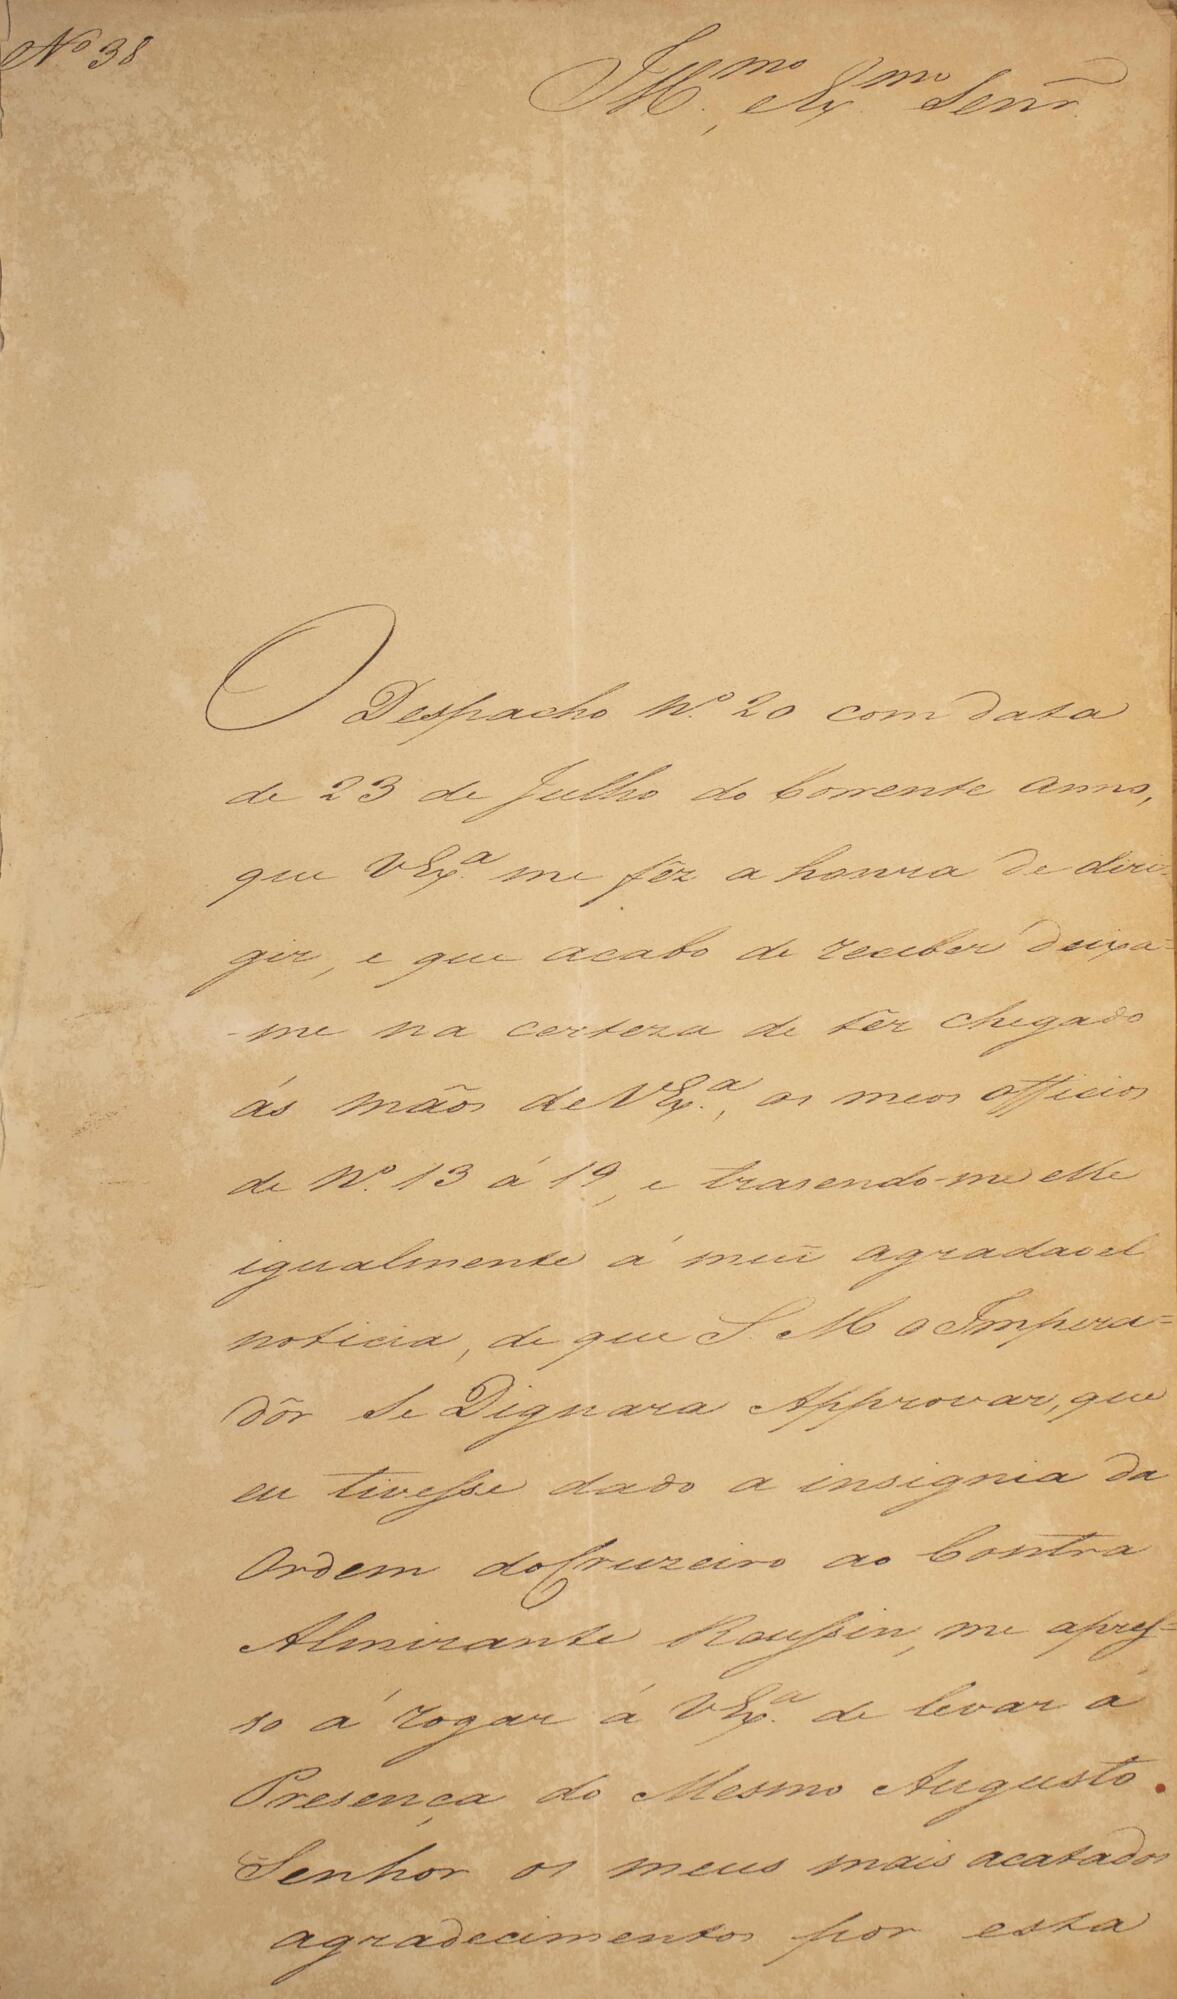 Nº 38
Illmo, e Exmo Senr.
O Despacho Nº. 20 com data
de 23 de Julho do Corrente Anno,
que VExª. me fêz a honra de diri-
gir, e que acabo de receber deixa=
-me na certeza de têr chegado
ás mãos de VExª., os meos officios
de Nº. 13 á 19, e trasendo-me elle
igualmente á meũ agradavel
noticia, de que S. M. O Impera=
dôr Se Dignara Approvar, que
eu tivesse dado a insignia da
Ordem do Cruzeiro ao Contra
Almirante Roussin, me apres=
so á rogar á VExª. de levar á
Presença do Mesmo Augusto
Senhor os meus mais acatados
agradecimentos por esta